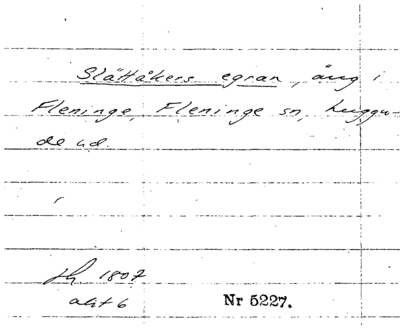 Slättåkers egran, äng i
Fleninge, Fleninge sn, Luggu-
de hd.
1807
akt 6
Nr 5227.